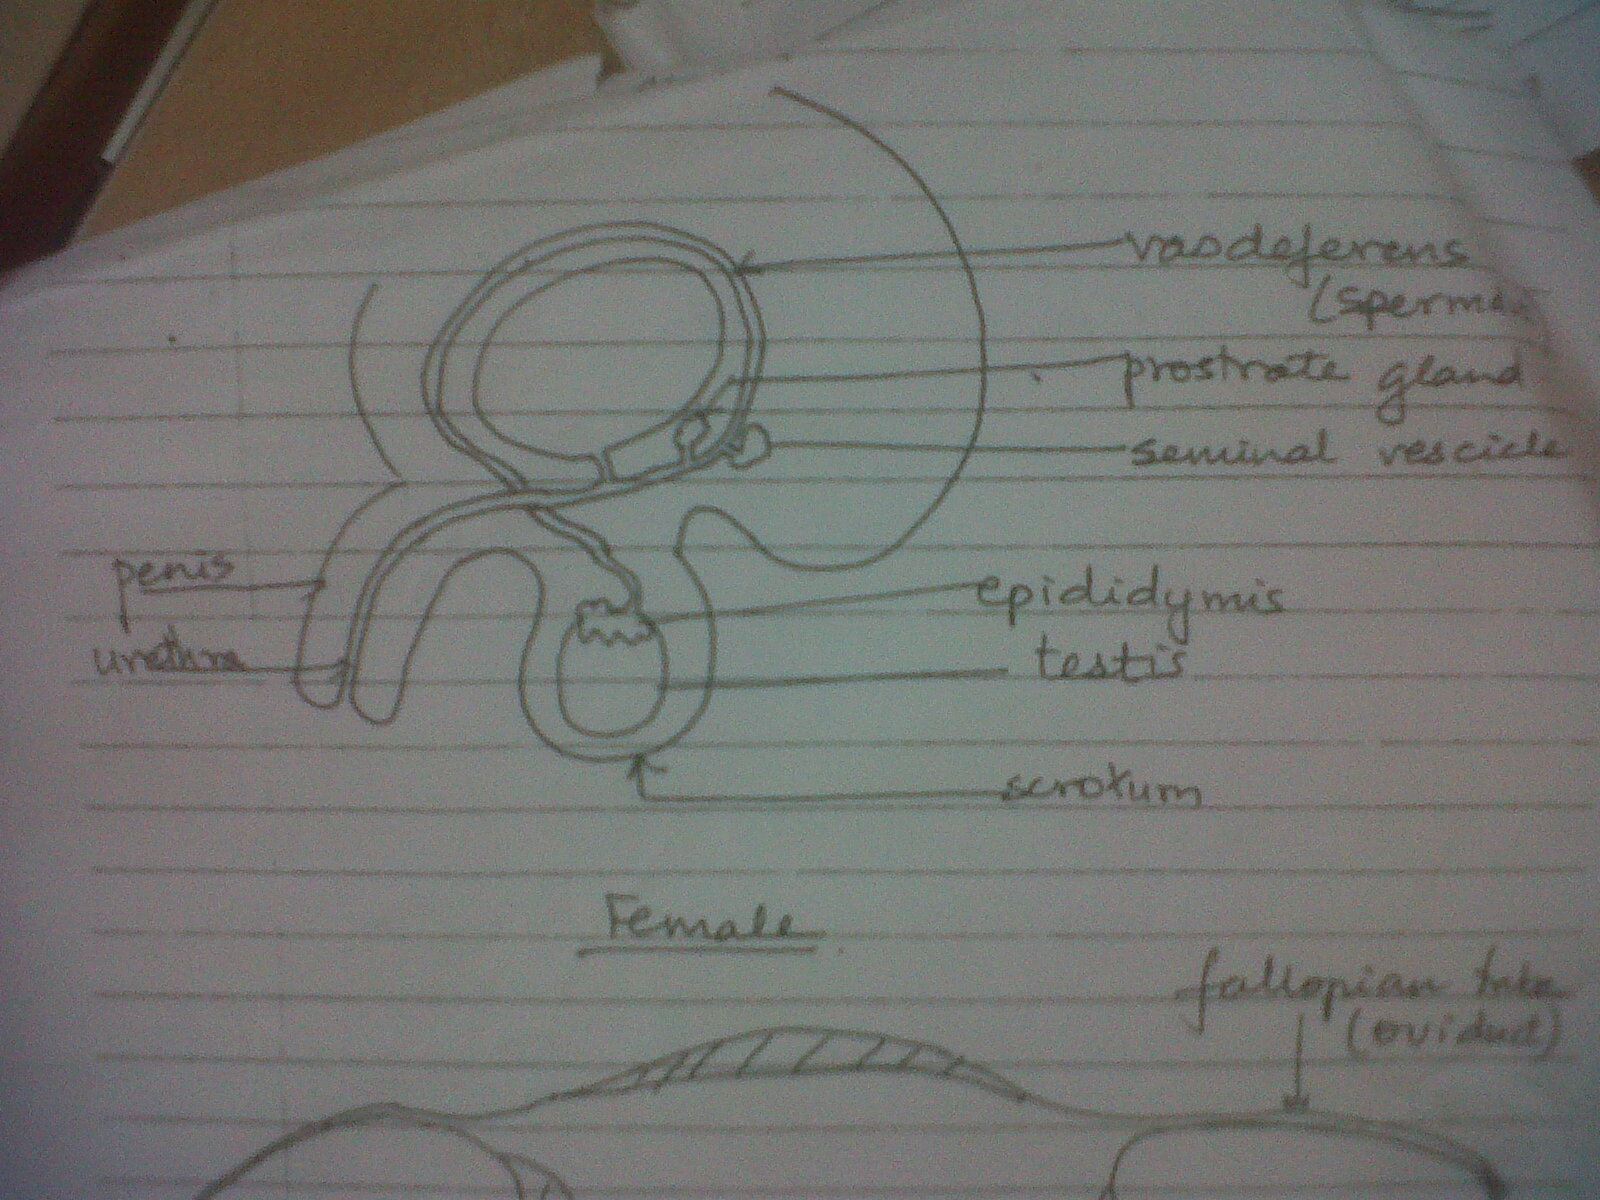 vasdeferens
(sperm
prostrate gland
seminal vescicle
penis
epididymis
urethra
testis
scrotum
Female
fallopian tube
(oviduct)